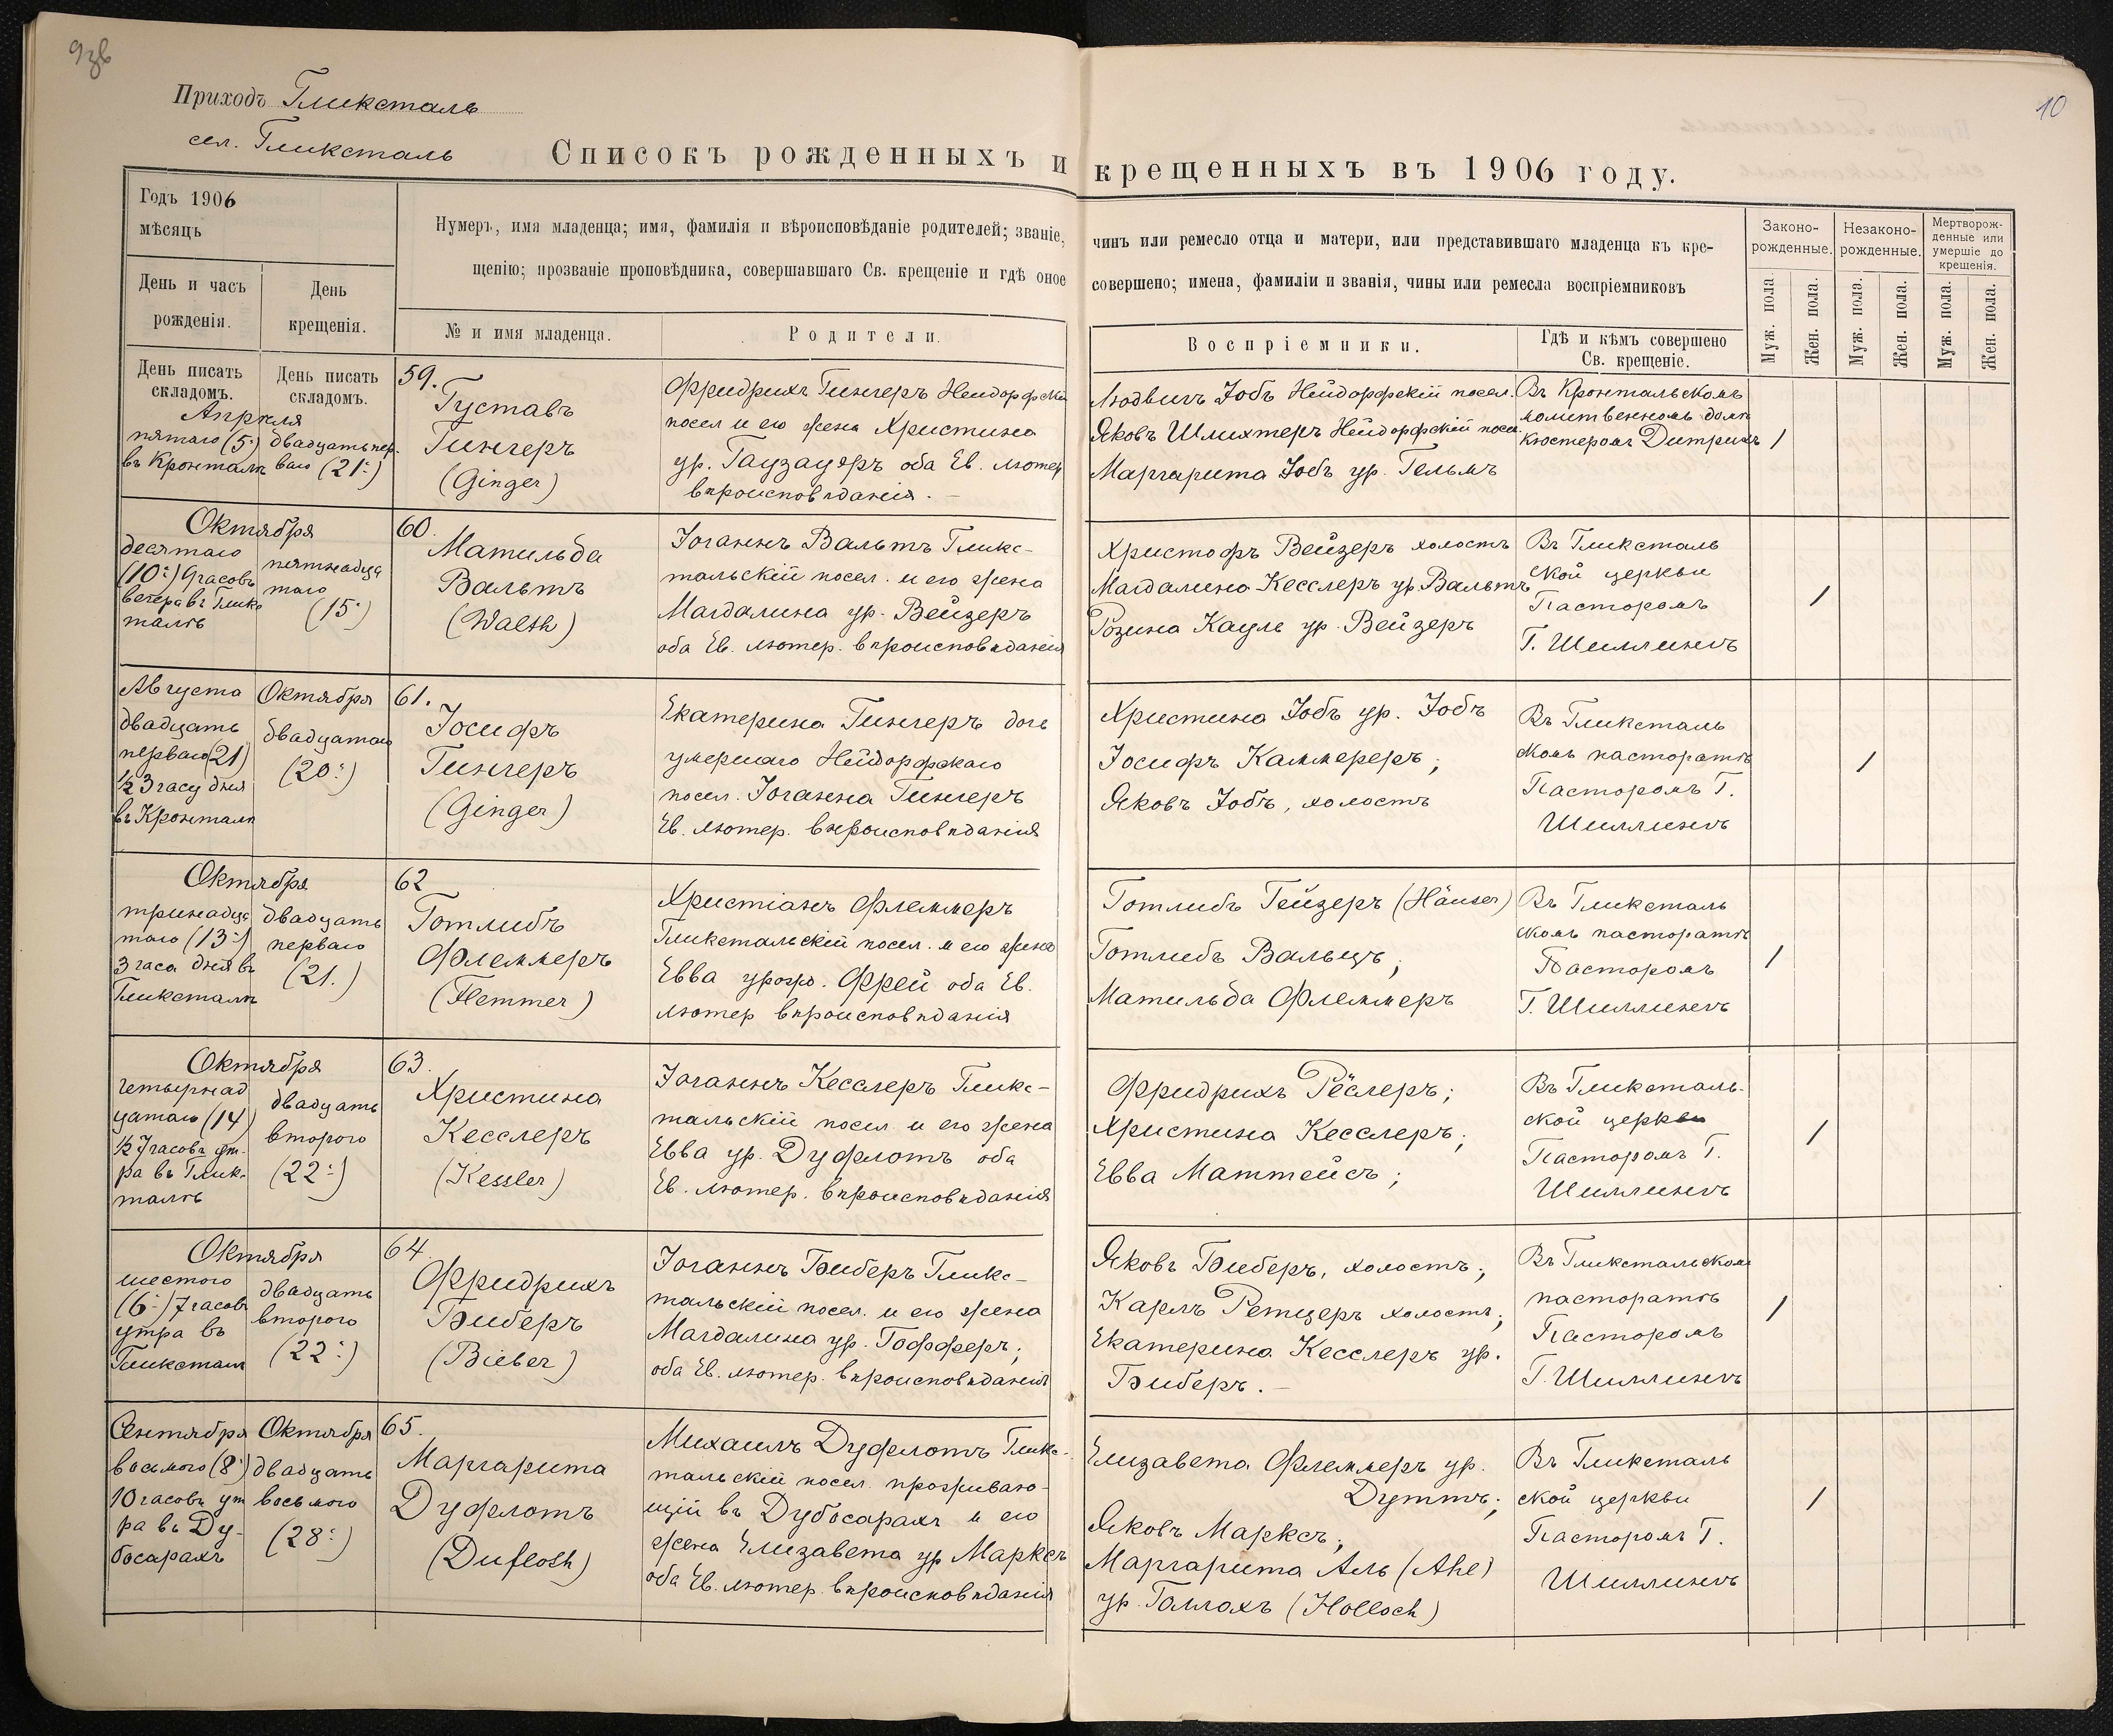 9зв
10
Приходъ Гликсталь
сел. Гликсталь
Списокъ рожденныхъ и крещенныхъ въ 1906 году.
Годъ 1906
мѣсяцъ
День и часъ
рожденія.
День
крещенія.
Нумеръ, имя младенца; имя, фамилія и вѣроисповѣданіе родителей; званіе, чинъ или ремесло отца и матери, или представившаго младенца къ кре-
щенію; прозваніе проповѣдника, совершавшаго Св. крещеніе и гдѣ оное совершено; имена, фамиліи и званія, чины или ремесла воспріемниковъ
№ и имя младенца.
Родители.
Воспріемники.
Гдѣ и кѣмъ совершено
Св. крещеніе.
Законо-
рожденные.
Незаконо-
рожденные.
Мертворож-
денные или
умершіе до
крещенія.
Муж. пола
Жен. пола.
Муж. пола.
Жен. пола.
Муж. пола.
Жен. пола.
День писать
складомъ.
День писать
складомъ.
Апрѣля
пятаго (5.)
въ Кронталѣ
двадцать пер-
ваго (21.)
59.
Густавъ
Гингеръ
(Ginger)
Фридрихъ Гингеръ Нейдорфскій
посел и его жена Христина
ур. Гаузауеръ оба Ев. лютер
вѣроисповѣданія. —
Людвигъ Іобъ Нейдорфскій посел.
Яковъ Шлихтеръ Нейдорфскій посел.
Маргарита Іобъ ур. Гельмъ
Въ Кронтальскомъ
молитвенномъ домѣ
кюстеромъ Дитрихъ
1
Октября
десятаго
(10.) 9 часовъ
вечера въ Гликс
талѣ
пятнадца
таго
(15.)
60.
Матильда
Вальтъ
(Walth)
Іоганнъ Вальтъ Гликс-
тальскій посел. и его жена
Магдалина ур. Вейзеръ
оба Ев. лютер. вѣроисповѣданія
Христофъ Вейзеръ холостъ
Магдалина Кесслеръ ур. Вальтъ
Розина Кауль ур. Вейзеръ
Въ Гликсталь
ской церкви
Пасторомъ
Г. Шиллингъ
1
Августа
двадцать
перваго (21)
½ 3 часу дня
въ Кронталѣ
Октября
двадцатаго
(20.)
61.
Іосифъ
Гингеръ
(Ginger)
Екатерина Гингеръ дочь
умершаго Нейдорфскаго
посел. Іоганна Гингеръ
Ев. лютер. вѣроисповѣданія
Христина Іобъ ур. Іобъ
Іосифъ Каммереръ;
Яковъ Іобъ, холостъ
Въ Гликсталь
скомъ пасторатѣ
Пасторомъ Г.
Шиллингъ
1
Октября
тринадца
таго (13.)
3 часа дня въ
Гликсталѣ
двадцать
перваго
(21.)
62
Готлибъ
Флеммеръ
(Flemmer)
Христіанъ Флеммеръ
Гликстальскій посел. и его жена
Евва урожд. Фрей оба Ев.
лютер вѣроисповѣданія
Готлибъ Гейзеръ (Häuser)
Готлибъ Вальцъ;
Матильда Флеммеръ
Въ Гликсталь
скомъ пасторатѣ
Пасторомъ
Г. Шиллингъ
1
Октября
четырнад
цатаго (14)
½ 7 часовъ ут-
ра въ Гликс-
талѣ
двадцать
второго
(22.)
63.
Христина
Кесслеръ
(Kessler)
Іоганнъ Кесслеръ Гликс-
тальскій посел. и его жена
Евва ур. Дуфлотъ оба
Ев. лютер. вѣроисповѣданія
Фридрихъ Рёслеръ;
Христина Кесслеръ;
Евва Маттейсъ;
Въ Гликсталь-
ской церкви
Пасторомъ Г.
Шиллингъ
1
Октября
шестого
(6.) 7 часовъ
утра въ
Гликсталѣ
двадцать
второго
(22.)
64.
Фридрихъ
Биберъ
(Bieber)
Іоганнъ Биберъ Гликс-
тальскій посел. и его жена
Магдалина ур. Гофферъ;
оба Ев. лютер. вѣроисповѣданія
Яковъ Биберъ, холостъ;
Карлъ Ретцеръ холостъ;
Екатерина Кесслеръ ур.
Биберъ. —
Въ Гликстальскомъ
пасторатѣ
Пасторомъ
Г. Шиллингъ
1
Сентября
восьмого (8.)
10 часовъ ут
ра въ Ду-
босарахъ
Октября
двадцать
восьмого
(28.)
65.
Маргарита
Дуфлотъ
(Dufloth)
Михаилъ Дуфлотъ Гликс-
тальскій посел. проживаю-
щій въ Дубосарахъ и его
жена Елизавета ур Марксъ
оба Ев. лютер. вѣроисповѣданія
Елизавета Флеммеръ ур.
Дуттъ;
Яковъ Марксъ;
Маргарита Аль (Ahl)
ур. Голлохъ (Holloch)
Въ Гликсталь
ской церкви
Пасторомъ Г.
Шиллингъ
1